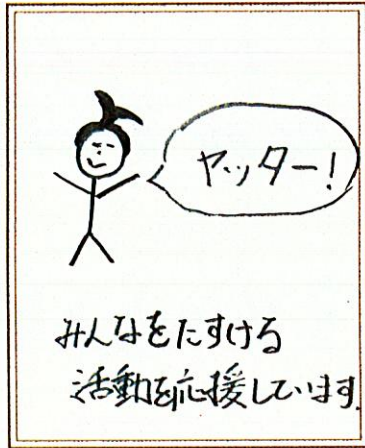 ヤッター！
みんなをたすける
活動を応援しています.